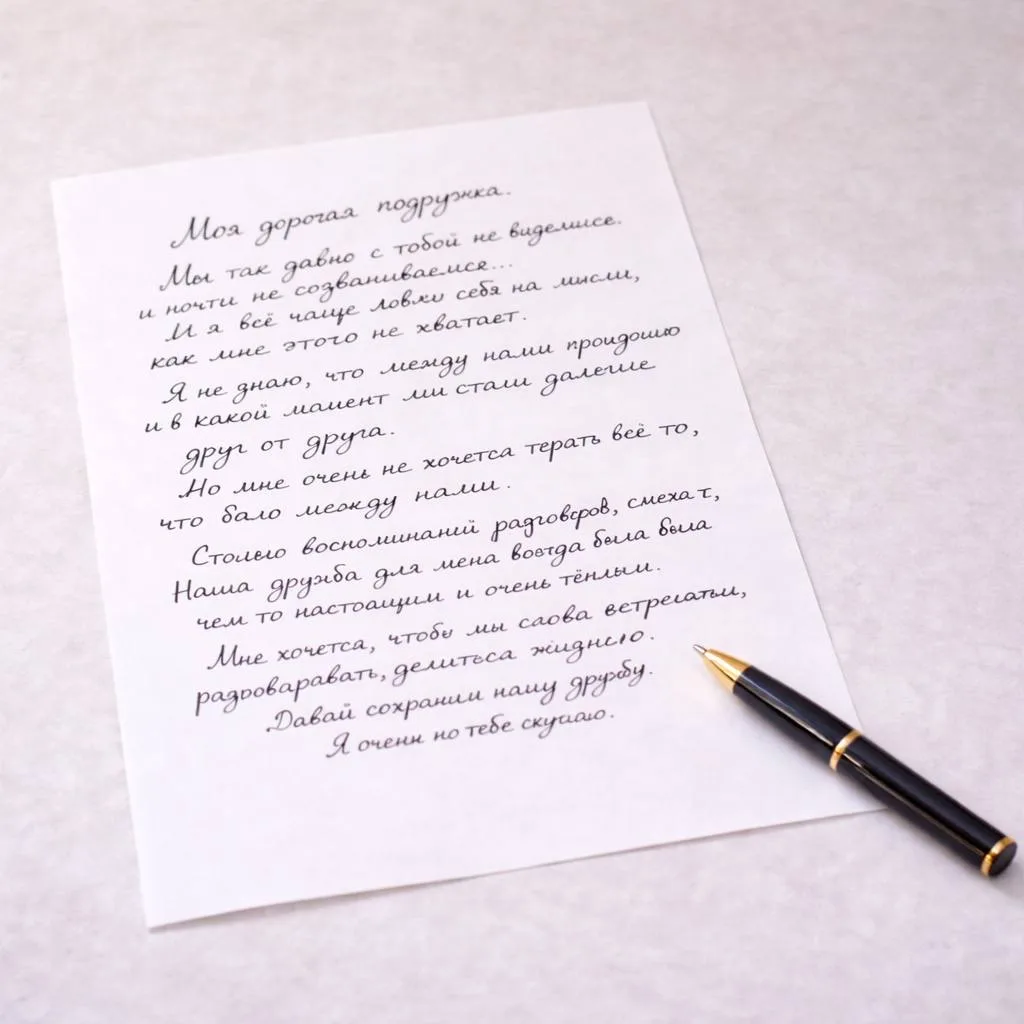 Моя дорогая подружка.
Мы так давно с тобой не виделисе.
и ночти не созваниваемся...
И я всё чаще ловлю себя на мысли,
как мне этого не хватает.
Я не знаю, что между нами проидошло
и в какой мамент мы стали далеше
друг от друга.
Но мне очень не хочетса терать всё то,
что бало между нами.
воспоминаний разговсров, смеха т,
Наша дружба для мена была была
чем то настоащим и очень тёнлым.
Мне хочетса, чтобы мы саова
делитьса
Давай сохраним нашу дружбу.
Я оченн но тебе скучаю.